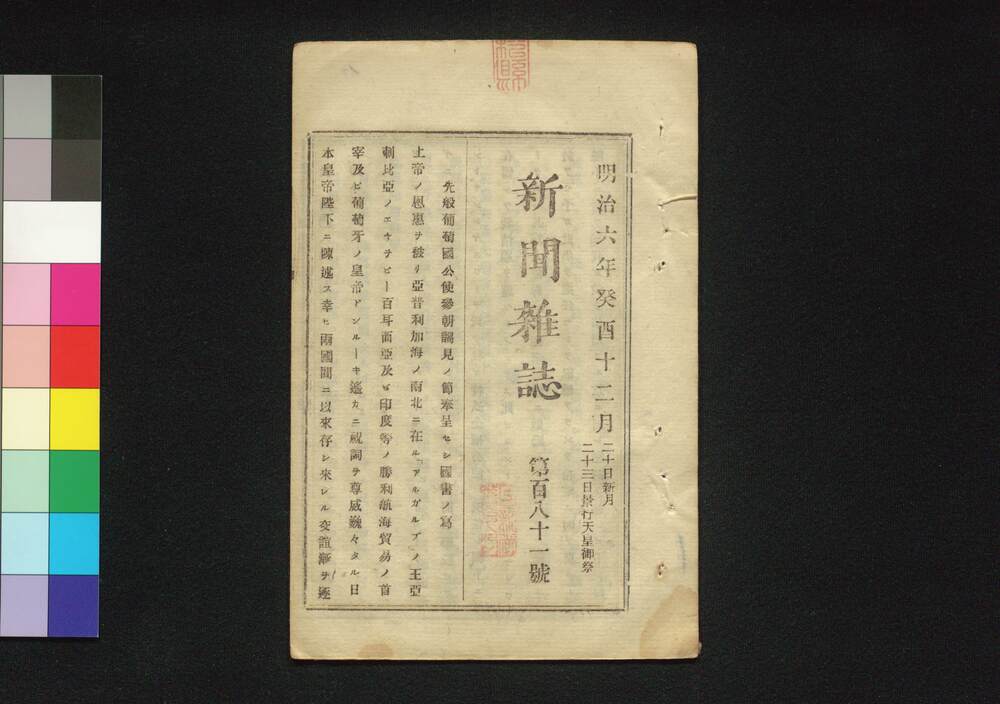 明治六年癸酉十二月
二十日新月
二十三日景行天皇御祭
新聞雜誌
第百八十一號
先般葡萄國公使參朝謁見ノ節奉呈セシ國書ノ寫
上帝ノ恩惠ヲ被リ亞普利加海ノ南北ニ在ルアルガルブノ王亞
剌比亞ノエチヲピー百耳西亞及ビ印度等ノ勝利航海貿易ノ首
宰及ビ葡萄牙ノ皇帝ドンルーキ遙カニ祝詞ヲ尊威巍々タル日
本皇帝陛下ニ陳述ス幸ヒ兩國間ニ以來存シ來レル交誼漸ヲ逐